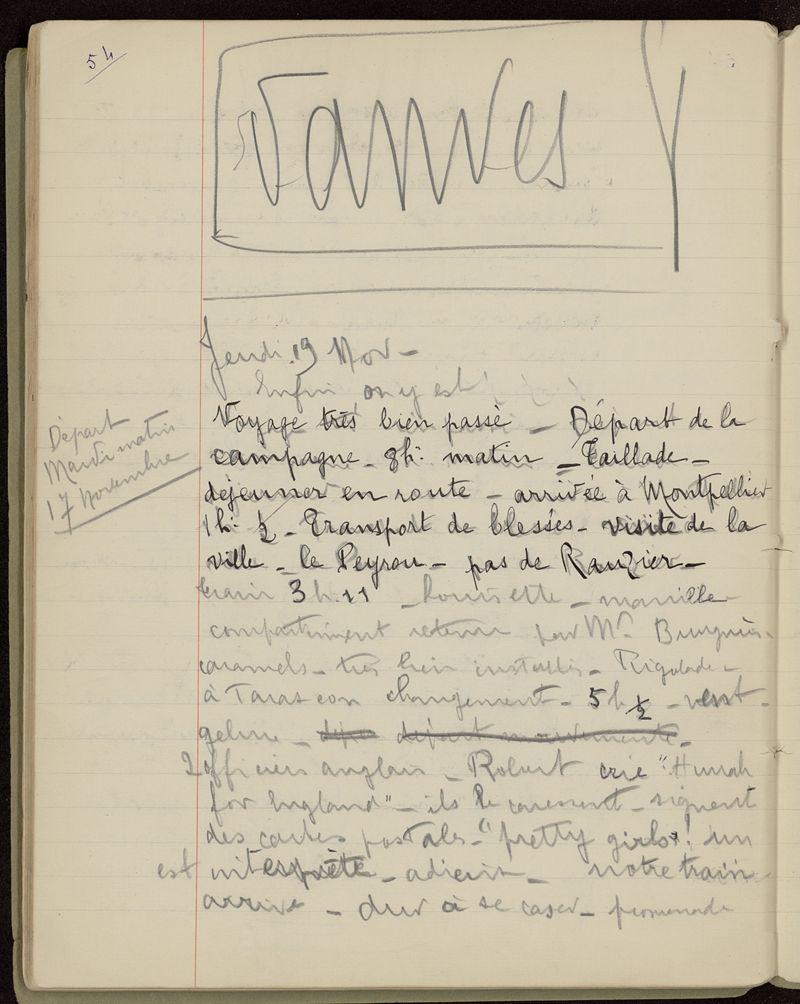 54
Vanves
Jeudi 19 Nov –
Enfin on y est !
Départ
Mardi matin
17 Novembre
Voyage très bien passé – Départ de la
campagne – 8h. matin – Taillade –
déjeuner en route – arrivée à Montpellier
1h. ½ – Transport de blessés – visite de la
ville – le Peyrou – pas de Rauzier –
train 3h.11 – Louisette – manille
compartiment retenu par Mr
caramels – très bien installés – Rigolade –
à Tarascon changement – 5h ½ – vent –
geline – départ mouvementé –
2 officiers anglais – Robert crie "Hurrah
for England" – ils le caressent – signent
des cartes postales – "pretty girls" ! un
est interprète – adieux – notre train
arrive – dur à se caser – promenade